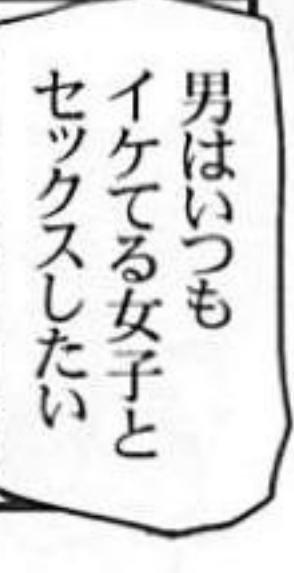 男はいつも
イケてる女子と
セックスしたい